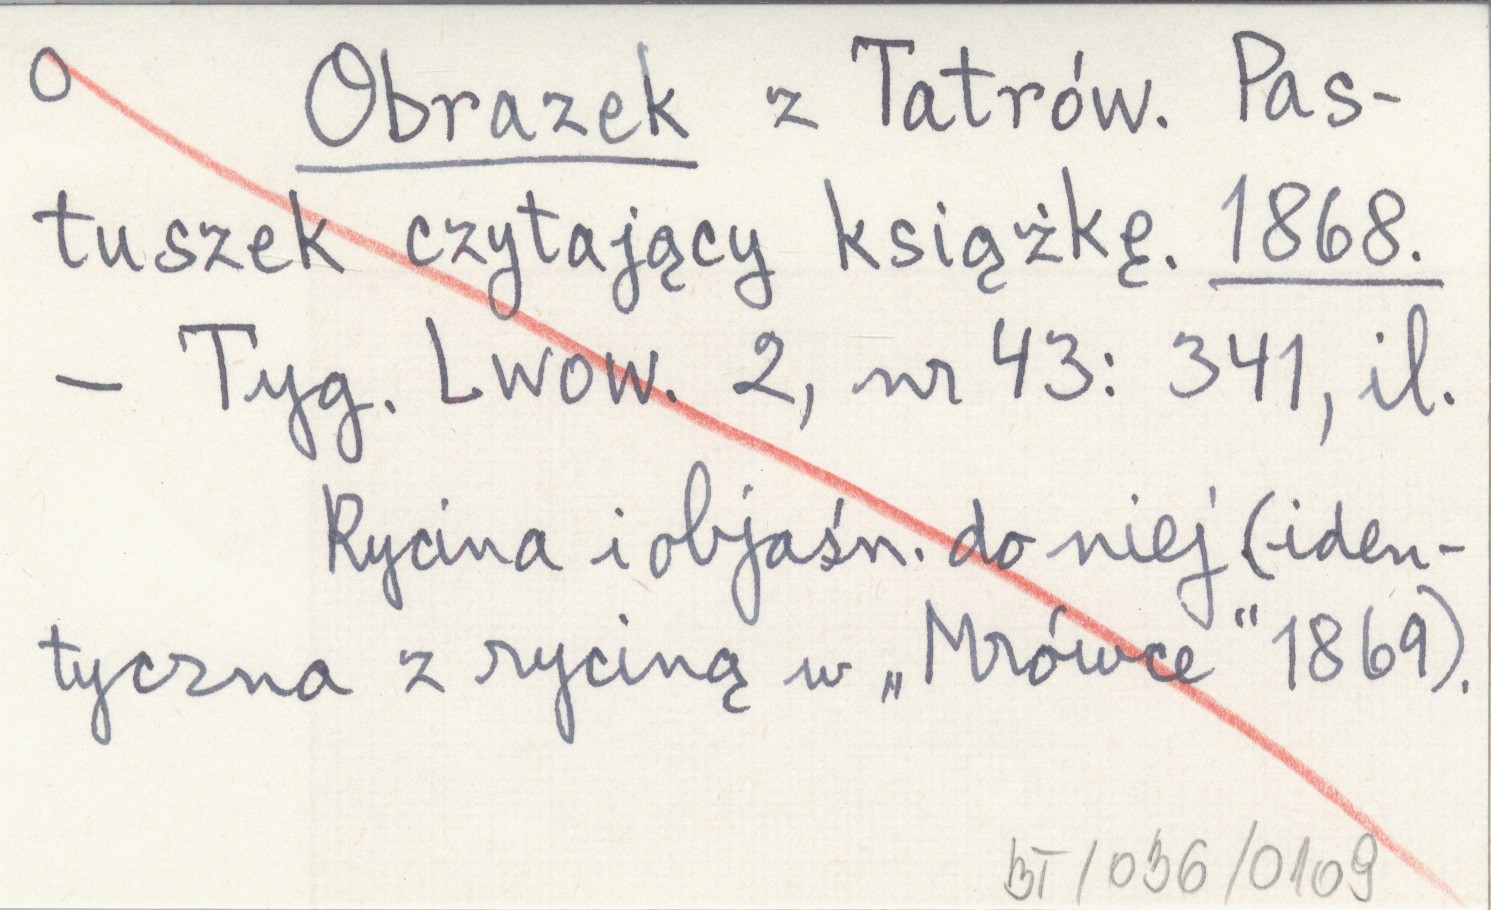 O Obrazek z Tatrów. Pas-
tuszek czytający książkę. 1868.
– Tyg. Lwow. 2, nr 43: 341, il.
Rycina i objaśn. do niej (iden-
tyczna z ryciną w „Mrówce" 1869).
BT/036/0109